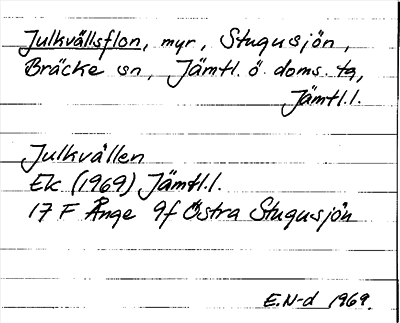 Julkvällsflon, myr, Stugusjön,
Bräcke sn, Jämtl. ö. doms. tg,
Jämtl.l.
Julkvällen
Ek (1969) Jämtl.l.
17 F Ånge 9f Östra Stugusjön
E.N-d 1969.